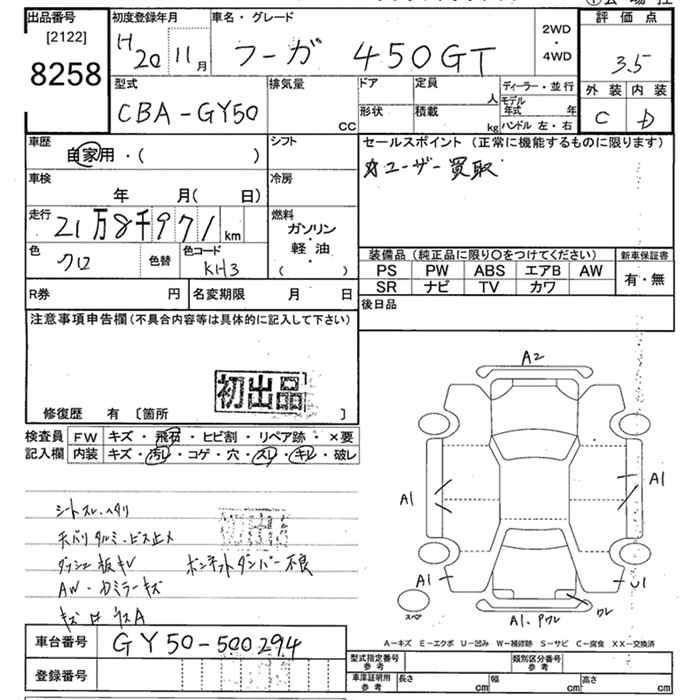 出品番号 初度登録年月 車名・グレード 2WD・4WD 評価点
[2122]
8258
H20 11月 フーガ 450GT 3.5
型式 排気量 ドア 定員 ディーラー・並行 外装 内装
CBA-GY50 CC 形状 人 積載 kg モデル年式 年 ハンドル 左・右 C D
車歴 シフト セールスポイント (正常に機能するものに限ります)
自家用・( )
☆ユーザー買取
車検 冷房
年 月( 日)
走行 燃料
21万8千971km ガソリン・軽油
色 色替 色コード ( )
クロ KH3
装備品 (純正品に限り○をつけてください) 新車保証書
PS PW ABS エアB AW 有・無
SR ナビ TV カワ
R券 円 名変期限 月 日 後日品
注意事項申告欄 (不具合内容等は具体的に記入して下さい)
初出品
修復歴 有 〔箇所 〕
検査員 FW キズ・飛石・ヒビ割・リペア跡・×要
記入欄 内装 キズ・汚レ・コゲ・穴・スレ・キレ・破レ
シートスレ・ヘタリ
天バリタルミ・ビス止メ
ダッシュ板キレ ボンネットダンパー不良
AW・カミラーキズ
A2
A1 A1
A1 U1
スペア
A1・Pワレ ワレ
A-キズ E-エクボ U-凹み W-補修跡 S-サビ C-腐食 XX-交換済
車台番号 GY50-500294
登録番号
型式指定番号 参考 類別区分番号 参考
車庫証明用 参考 長さ cm 幅 cm 高さ cm